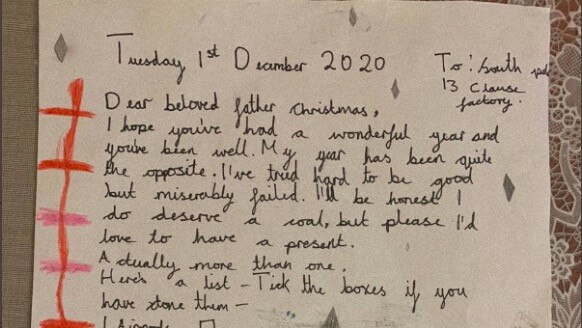 Tuesday 1st December 2020
To: South
13 Clause
factory.
Dear beloved father christmas,
I hope you've had a wonderful year and
you've been well. My year has been quite
the opposite. I've tried hard to be good
but miserably failed. I'll be honest I
do deserve a coal, but please I'd
love to have a present.
Actually more than one.
Here's a list - Tick the boxes if you
have done them -